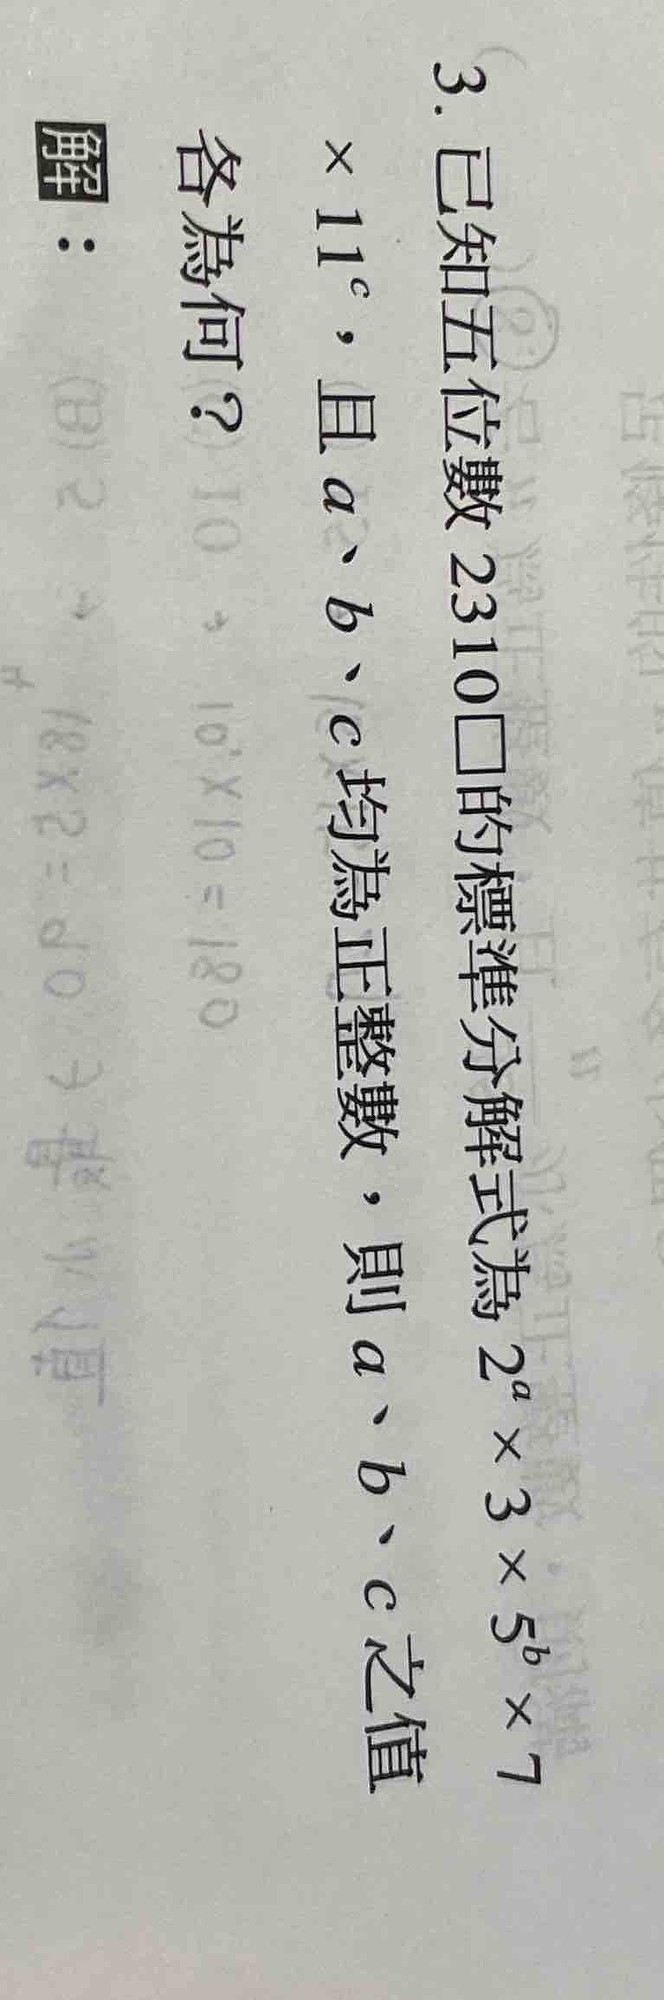 3. 已知五位數 2310□的標準分解式為 2ᵃ × 3 × 5ᵇ × 7
× 11ᶜ，且 a、b、c 均為正整數，則 a、b、c 之值
各為何？
解：